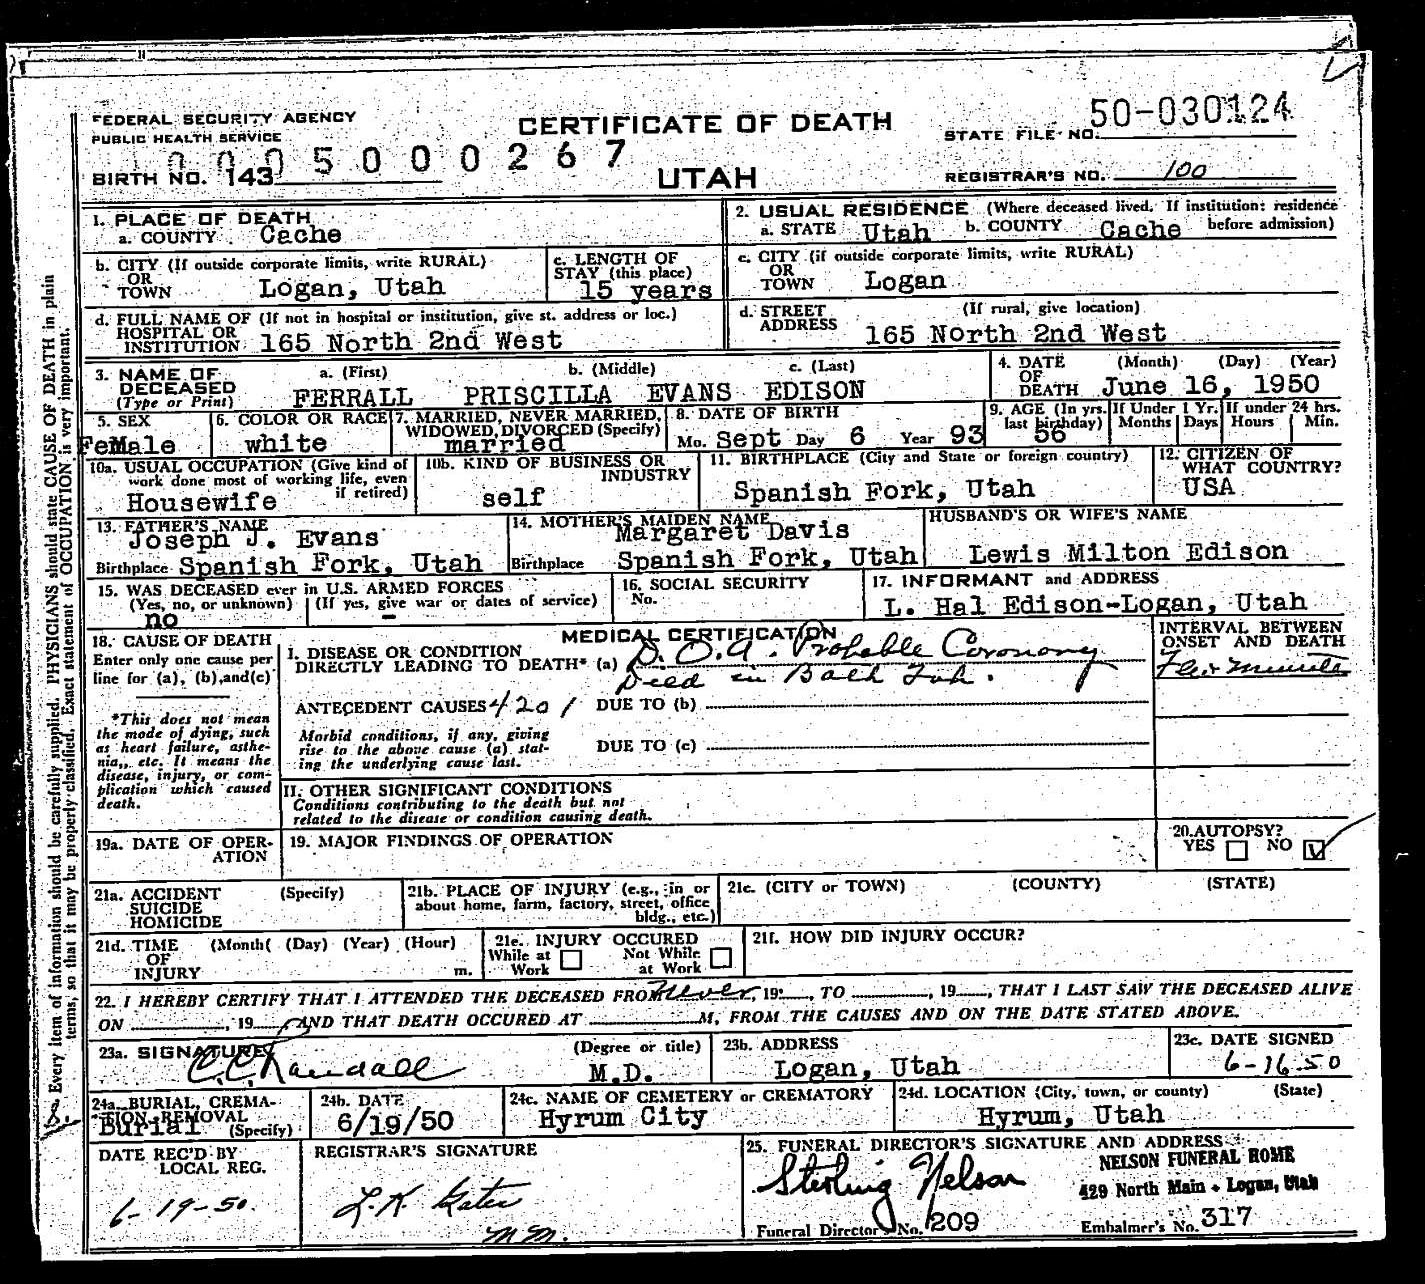 50-030124
FEDERAL SECURITY AGENCY
PUBLIC HEALTH SERVICE
CERTIFICATE OF DEATH
STATE FILE NO.
5 0 0 0 2 6 7
BIRTH NO. 143
UTAH
REGISTRAR'S NO. 100
1. PLACE OF DEATH
a. COUNTY Cache
2. USUAL RESIDENCE (Where deceased lived. If institution: residence before admission)
a. STATE Utah b. COUNTY Cache
b. CITY (If outside corporate limits, write RURAL)
OR
TOWN Logan, Utah
c. LENGTH OF
STAY (this place)
15 years
c. CITY (if outside corporate limits, write RURAL)
OR
TOWN Logan
d. FULL NAME OF (If not in hospital or institution, give st. address or loc.)
HOSPITAL OR
INSTITUTION 165 North 2nd West
d. STREET (If rural, give location)
ADDRESS 165 North 2nd West
3. NAME OF
DECEASED
(Type or Print)
a. (First) b. (Middle) c. (Last)
FERRALL PRISCILLA EVANS EDISON
4. DATE (Month) (Day) (Year)
OF
DEATH June 16, 1950
5. SEX
FeMale
6. COLOR OR RACE
white
7. MARRIED, NEVER MARRIED,
WIDOWED, DIVORCED (Specify)
married
8. DATE OF BIRTH
Mo. Sept Day 6 Year 93
9. AGE (In yrs.
last birthday)
56
If Under 1 Yr.
Months Days
If under 24 hrs.
Hours Min.
10a. USUAL OCCUPATION (Give kind of
work done most of working life, even
if retired)
Housewife
10b. KIND OF BUSINESS OR
INDUSTRY
self
11. BIRTHPLACE (City and State or foreign country)
Spanish Fork, Utah
12. CITIZEN OF
WHAT COUNTRY?
USA
13. FATHER'S NAME
Joseph J. Evans
Birthplace Spanish Fork, Utah
14. MOTHER'S MAIDEN NAME
Margaret Davis
Birthplace Spanish Fork, Utah
HUSBAND'S OR WIFE'S NAME
Lewis Milton Edison
15. WAS DECEASED ever in U.S. ARMED FORCES
(Yes, no, or unknown) (If yes, give war or dates of service)
no -
16. SOCIAL SECURITY
No.
17. INFORMANT and ADDRESS
L. Hal Edison-Logan, Utah
18. CAUSE OF DEATH
Enter only one cause per
line for (a), (b),and(c)
*This does not mean
the mode of dying, such
as heart failure, asthe-
nia,, etc. It means the
disease, injury, or com-
plication which caused
death.
MEDICAL CERTIFICATION
I. DISEASE OR CONDITION
DIRECTLY LEADING TO DEATH* (a) D.O.A. Probable Coronary
Died in Bath Tub.
INTERVAL BETWEEN
ONSET AND DEATH
Few minutes
ANTECEDENT CAUSES 4201 DUE TO (b)
Morbid conditions, if any, giving
rise to the above cause (a) stat-
ing the underlying cause last.
DUE TO (c)
II. OTHER SIGNIFICANT CONDITIONS
Conditions contributing to the death but not
related to the disease or condition causing death.
19a. DATE OF OPER-
ATION
19. MAJOR FINDINGS OF OPERATION
20. AUTOPSY?
YES NO
21a. ACCIDENT (Specify)
SUICIDE
HOMICIDE
21b. PLACE OF INJURY (e.g., in or
about home, farm, factory, street, office
bldg., etc.)
21c. (CITY or TOWN) (COUNTY) (STATE)
21d. TIME (Month( (Day) (Year) (Hour)
OF
INJURY m.
21e. INJURY OCCURED
While at Not While
Work at Work
21f. HOW DID INJURY OCCUR?
22. I HEREBY CERTIFY THAT I ATTENDED THE DECEASED FROM Never, 19, TO , 19, THAT I LAST SAW THE DECEASED ALIVE
ON , 19 , AND THAT DEATH OCCURED AT M, FROM THE CAUSES AND ON THE DATE STATED ABOVE.
23a. SIGNATURE (Degree or title)
C.C. Randall M.D.
23b. ADDRESS
Logan, Utah
23c. DATE SIGNED
6-16-50
24a. BURIAL, CREMA-
TION, REMOVAL
(Specify)
Burial
24b. DATE
6/19/50
24c. NAME OF CEMETERY or CREMATORY
Hyrum City
24d. LOCATION (City, town, or county) (State)
Hyrum, Utah
DATE REC'D BY
LOCAL REG.
6-19-50.
REGISTRAR'S SIGNATURE
mm.
25. FUNERAL DIRECTOR'S SIGNATURE AND ADDRESS
Sterling Nelson
NELSON FUNERAL HOME
429 North Main - Logan, Utah
Funeral Director's No. 209
Embalmer's No. 317
Every item of information should be carefully supplied. PHYSICIANS should state CAUSE OF DEATH in plain
terms, so that it may be properly classified. Exact statement of OCCUPATION is very important.